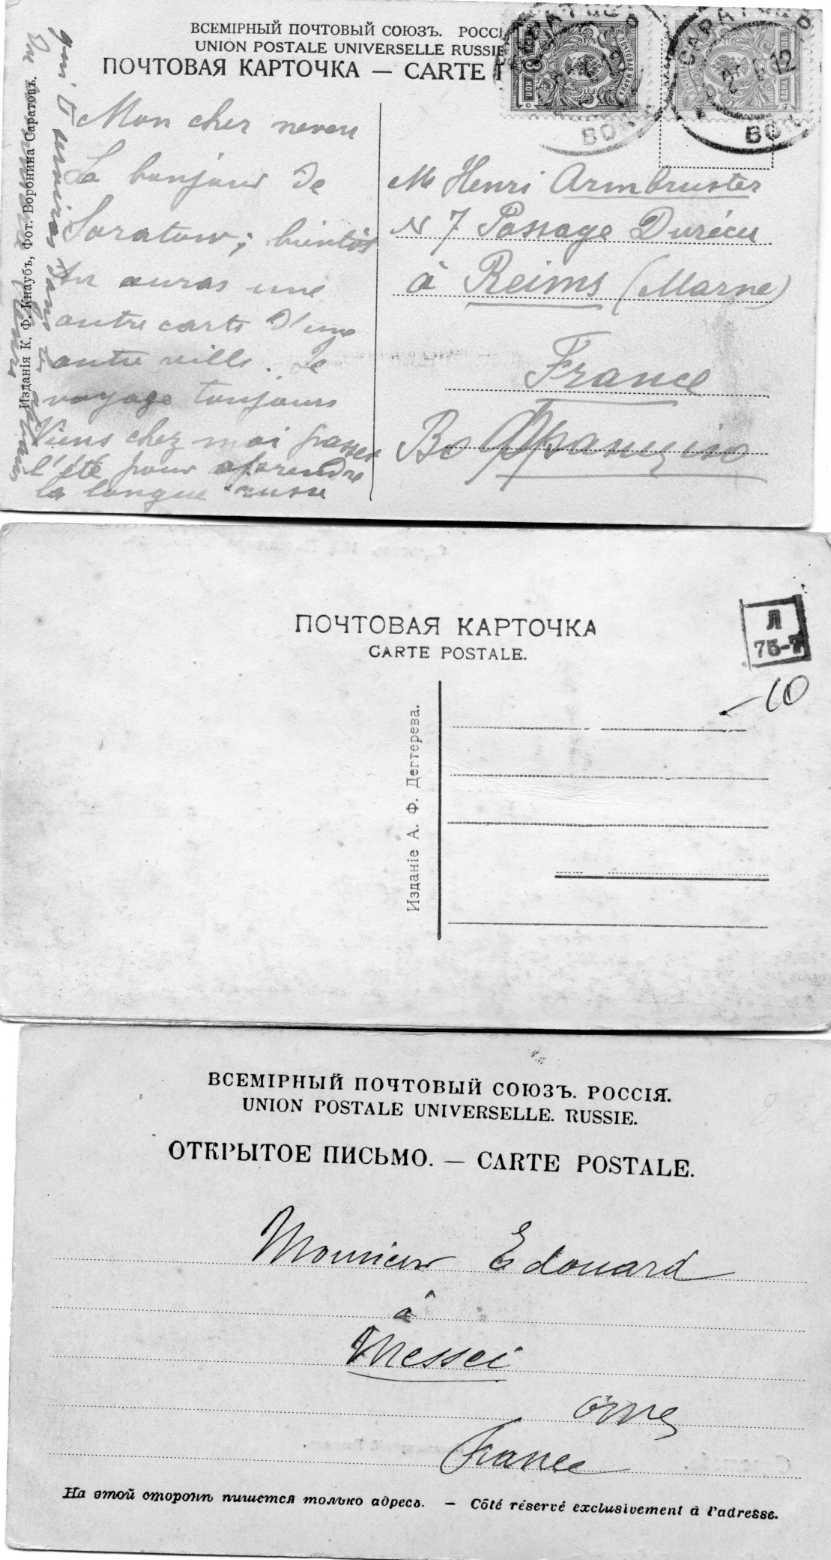 ВСЕМІРНЫЙ ПОЧТОВЫЙ СОЮЗЪ. РОССІ
UNION POSTALE UNIVERSELLE RUSSIE
ПОЧТОВАЯ КАРТОЧКА — CARTE
САРАТОВЪ
ВОК
САРАТОВЪ
12
ВОК
Изданія К. Ф. Кнаубъ, Фот. Воронина Саратовъ.
Mon cher neveu
Le bonjour de
Saratow; bientôt
tu auras une
autre carte d'une
autre ville. Je
voyage toujours
Viens chez moi passer
l'été pour apprendre
la langue russe
Mr Henri Armbruster
N 7 Passage Durécu
à Reims (Marne)
France
Во Францію
ПОЧТОВАЯ КАРТОЧКА
CARTE POSTALE.
Л
75-7
-10
Изданіе А. Ф. Дегтерева.
ВСЕМІРНЫЙ ПОЧТОВЫЙ СОЮЗЪ. РОССІЯ.
UNION POSTALE UNIVERSELLE. RUSSIE.
ОТКРЫТОЕ ПИСЬМО. — CARTE POSTALE.
Monsieur Edouard
à
Messei
Orne
France
На этой сторонѣ пишется только адресъ. — Côté réservé exclusivement à l'adresse.